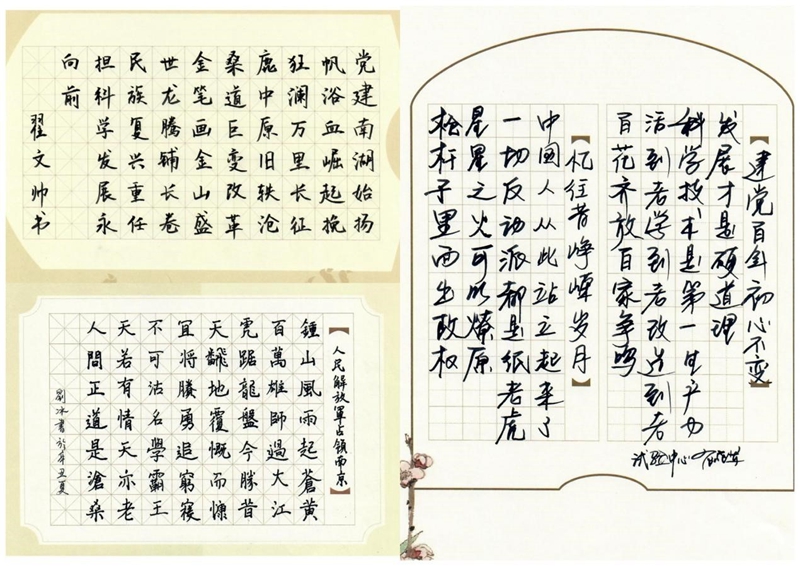 党建南湖始扬
帆浴血崛起挽
狂澜万里长征
鹿中原旧轶沧
桑道巨变改革
金笔画金山盛
世龙腾铺长卷
民族复兴重任
担科学发展永
向前
翟文帅书
【人民解放軍占領南京】
鍾山風雨起蒼黄
百萬雄師過大江
虎踞龍盤今勝昔
天翻地覆慨而慷
宜將賸勇追窮寇
不可沽名學霸王
天若有情天亦老
人間正道是滄桑
劉冰書於辛丑夏
【建党百年初心不变】
发展才是硬道理
科学技术是第一生产力
活到老学到老改造到老
百花齐放百家争鸣
【忆往昔峥嵘岁月】
中國人从此站立起来了
一切反动派都是纸老虎
星星之火可以燎原
枪杆子里面出政权
试验中心